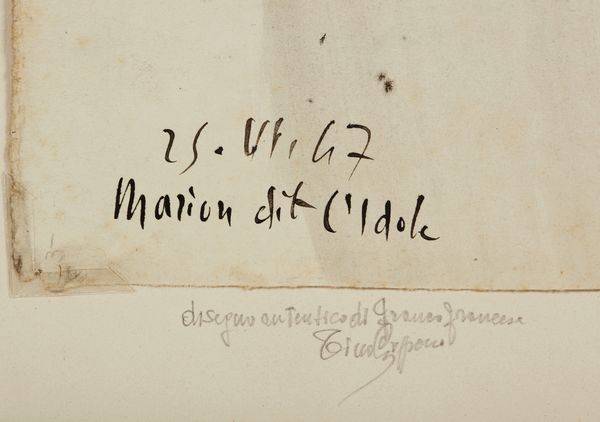 25. VI. 47
Marion dit l'Idole
disegno autentico di Franco Francese